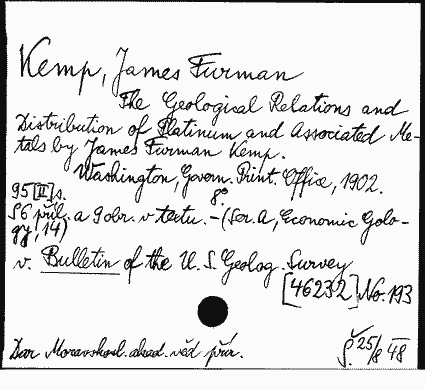 Kemp, James Furman
The Geological Relations and
Distribution of Platinum and Associated Me-
tals by James Furman Kemp.
Washington, Govern. Print. Office, 1902.
95 [II] s. 8°
56 příl. a 9 obr. v textu. - (Ser. A, Economic Golo-
gy, 14)
v. Bulletin of the U. S. Geolog. Survey
[46232] No. 193
Dar Moravskosl. akad. věd přír.
25/8 48